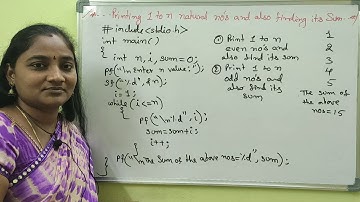 Printing 1 to n natural no's and also finding its Sum
#include<stdio.h>
int main()
{
int n, i, sum=0;
pf("\n Enter n value:");
sf("%d", &n);
i=1;
while (i<=n)
{
pf("\n%d", i);
sum=sum+i;
i++;
}
pf("\n The Sum of the above nos=%d", sum);
}
① Print 1 to n even no's and also find its sum
② Print 1 to n odd no's and also find its sum
1
2
3
4
5
The sum of the above nos=15